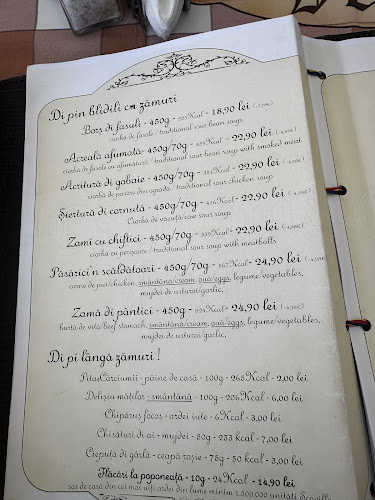 Di pin blidili cu zămuri
Borș di fasuli - 450g - Kcal - 18,90 lei
ciorbă de fasole / traditional sour bean soup
Acreală afumată - 450g/70g - Kcal - 22,90 lei
ciorbă de fasole cu afumătură / traditional sour bean soup with smoked meat
Acritură di gobaie - 450g/70g - Kcal - 22,90 lei
ciorbă de pasăre din ogradă / traditional sour chicken soup
Șiertură di cornută - 450g/70g - Kcal - 22,90 lei
Ciorbă de vacuță/cow sour soup
Zami cu chiftici - 450g/70g - Kcal - 22,90 lei
ciorbă cu perișoare / traditional sour soup with meatballs
Păsărici'n scăldătoari - 450g/70g - Kcal - 24,90 lei
carne de pui/chicken, smântână/cream, ouă/eggs, legume/vegetables,
mujdei de usturoi/garlic,
Zamă di pântici - 450g - Kcal - 24,90 lei
burtă de vită/beef stomach, smântână/cream, ouă/eggs, legume/vegetables,
mujdei de usturoi/garlic,
Di pi lângă zămuri !
PitaCârciumii - pâine de casă - 100g - 268Kcal - 2,00 lei
Delișiu mâților - smântână - 100g - 206Kcal - 6,00 lei
Chipăruș focos - ardei iute - 6Kcal - 3,00 lei
Chisături di ai - mujdei - 50g - 233 kcal - 7,00 lei
Ciepuță di gârlă - ceapă roșie - 75g - 50 kcal - 3,00 lei
Flăcări la poponeață - 10g - 24Kcal - 14,90 lei
sos de casă din cei mai iuți ardei din lume minim 1.500.000 unități Scoville